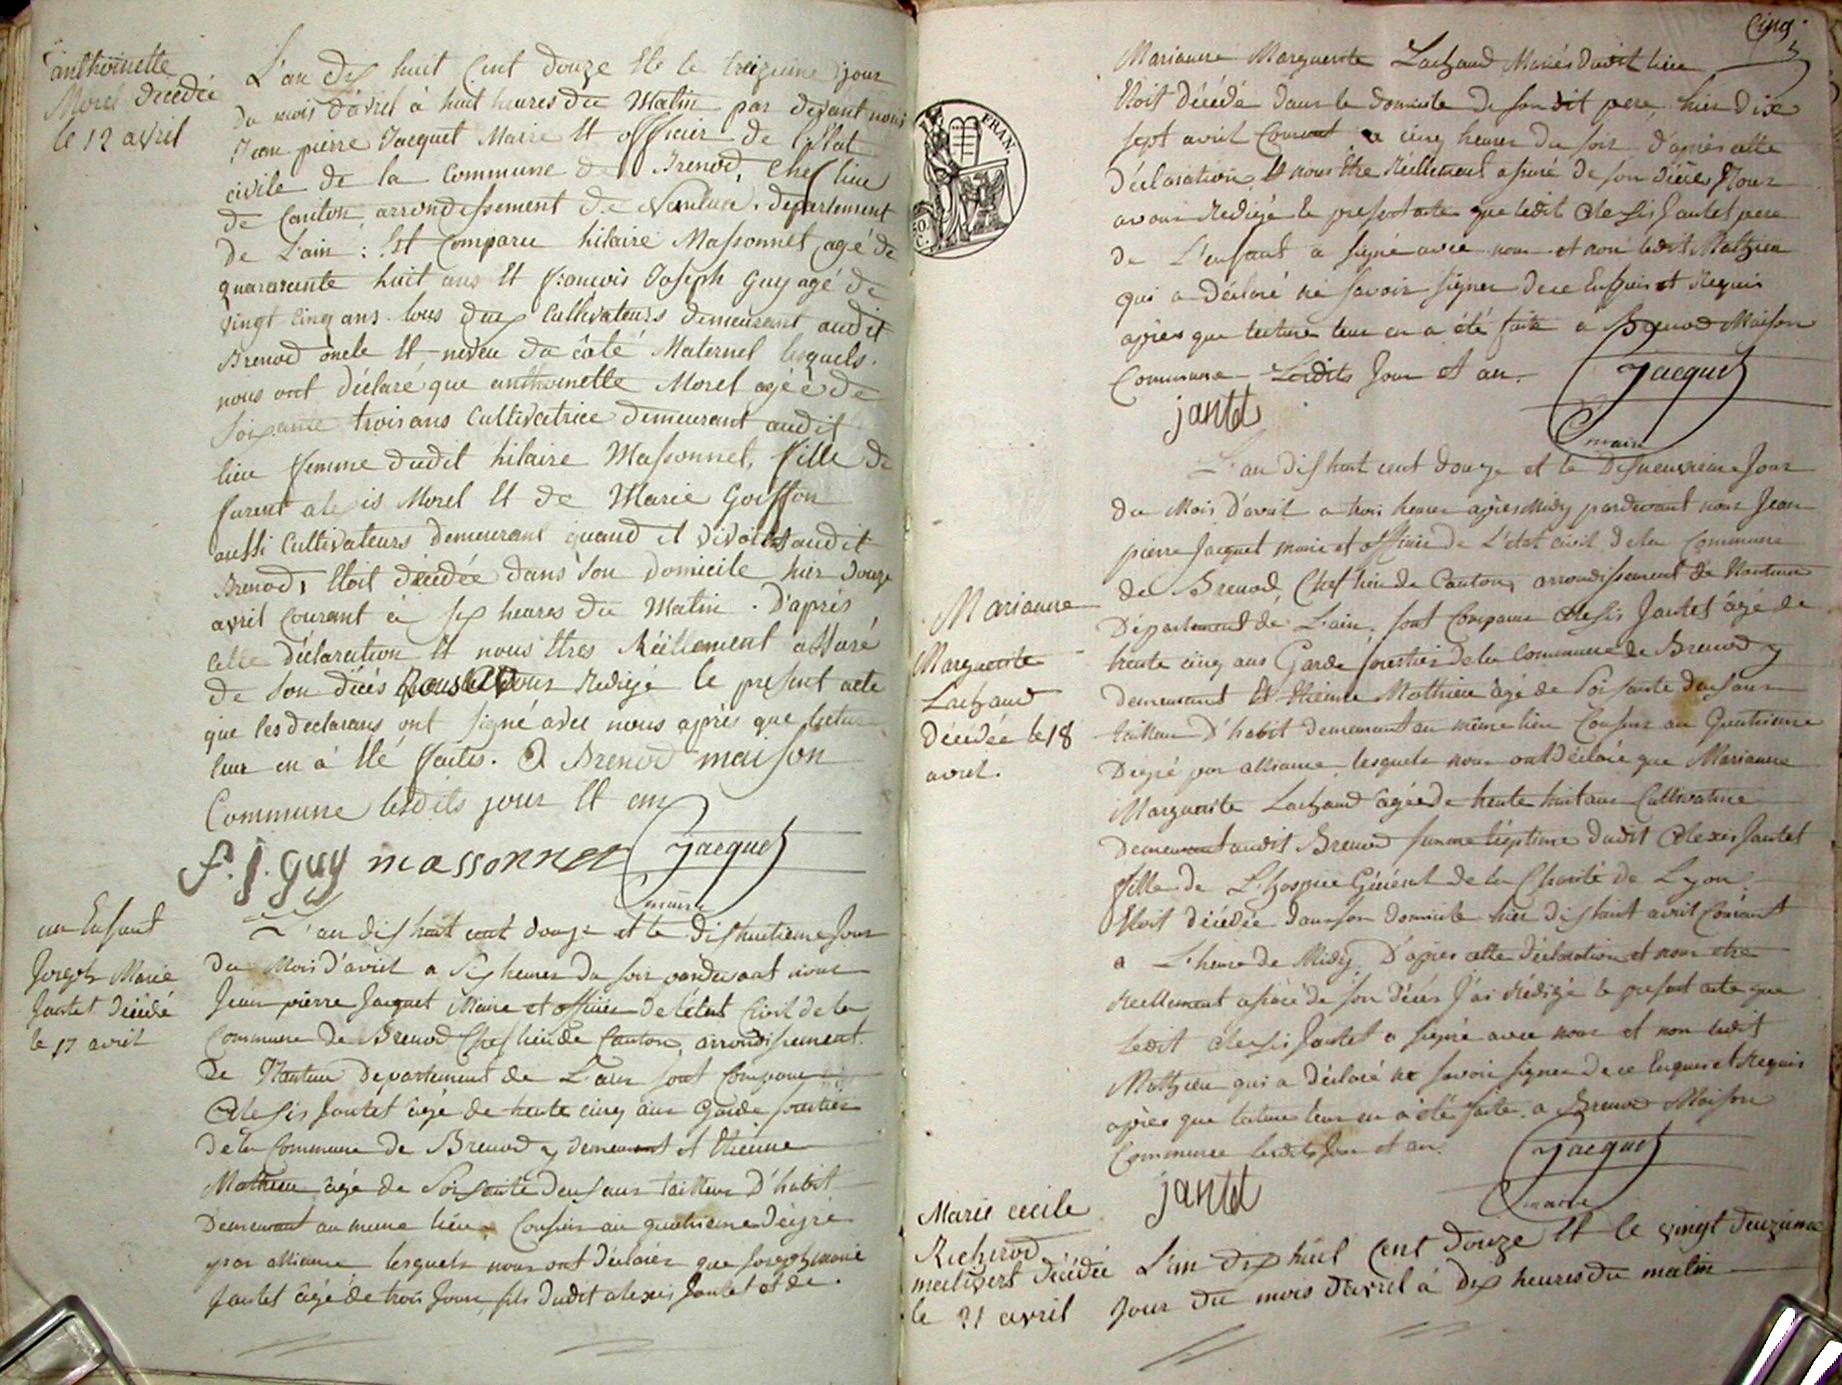 anthoinette
Morel décédée
le 12 avril
L'an dix huit Cent douze Et le treizieme jour
du mois d'avril à huit heures du Matin par devant nous
Jean pierre Jacquet Maire Et officier de l'Etat
civile de la Commune de Brenod, Chef lieu
de Canton arrondissement de Nantua. departement
de L'ain : Est Comparu hilaire Massonnet agé de
quararante huit ans Et francois Joseph Guy agé de
vingt cinq ans tous deux Cultivateurs demeurant audit
Brenod oncle Et neveu du côté Maternel lesquels
nous ont déclaré que anthoinette Morel agéé de
soixante trois ans Cultivatrice demeurant audit
lieu femme dudit hilaire Massonnet, fille de
furent alexis Morel Et de Marie Goiffon
aussi Cultivateurs demeurant quand il vivoit audit
Brenod, Etoit décédée dans son domicile hier douze
avril Courant à six heures du Matin. D'après
cette déclaration Et nous Etres Réellement assuré
de son dicés avons Rediejé le presant acte
que les declarans ont signé avec nous après que lecture
leur en à Eté faites. A Brenod maison
Commune lesdits jour Et an
f. j. guy massonnet Jacquet
maire
un Enfant
Joseph Marie
Jantet Décédé
le 17 avril
L'an dishuit cent douze et le dishuitieme Jour
du Mois d'avril a Six heures du soir pardevant nous
Jean pierre Jacquet Maire et officier de létat Civil de la
Commune de Brenod Chef lieu de Canton, arrondissement
De Nantua Departement de L'ain sont Comparu
Alexis Jantet agé de trente cinq ans Garde forestier
de la Commune de Brenod y demeurant et Etienne
Mathieu agé de Soisante deux ans tailleur D'habit
Demeurant au meme lieu Cousin au quatrieme dégré
par alliance lesquels nous ont déclarés que Joseph marie
Jantet âgé de trois Jours, fils dudit alexis Jantet et de
Cinq
5
Marianne Marguerite Lachaud Mariés dudit lieu
Etoit décédé dans le domicile de son dit pere, hier dix
sept avril Courant a cinq heures du soir d'après cette
déclaration, Et nous Etre réellement assuré de son décès Nous
avons redigé le present acte que ledit Alexis Jantet pere
de L'enfant a signé avec nous et non ledit Mathieu
qui a déclaré ne savoir signer de ce Enquis et Requis
après que lecture leur en a été faite a Brenod Maison
Commune Lesdits Jour et an. Jacquet
jantet
maire
L'an dishuit cent douze et le Disneuvieme Jour
du Mois d'avril a trois heures après Midy pardevant nous Jean
pierre Jacquet maire et officier de L'état civil de la Commune
de Brenod, Chef lieu de Canton, arrondissement de Nantua
Departement de L'ain, sont Comparu Alexis Jantet âgé de
trente cinq ans Garde forestier de la Commune de Brenod y
demeurant Et Etienne Mathieu âgé de Soisante deux ans
tailleur D'habit demeurant au même lieu Cousin au Quatrieme
Dégré par alliance, lesquels nous ont déclaré que Marianne
Marguerite Lachaud âgée de trente huit ans Cultivatrice
Demeurant audit Brenod femme légitime dudit Alexis Jantet
fille de L'hospice Général de la Charité de Lyon
Etoit décédée dans son domicile hier dishuit avril Courant
a L'heure de Midy. D'après cette déclaration et nous etre
réellement assuré de son décès J'ai rédigé le presant acte que
Ledit Alexis Jantet a signé avec nous et non ledit
Mathieu qui a déclaré ne savoir signer de ce Enquis et Requis
après que lecture leur en a été faite. a Brenod Maison
Commune lesdits Jour et an. Jacquet
jantet
maire
Marianne
Marguerite
Lachaud
Décédée le 18
avril.
Marie cecile
Richerod
décédée
le 21 avril
L'an dix huit Cent douze Et le vingt deuzieme
Jour du mois d'avril à dix heures du matin
FRAN.